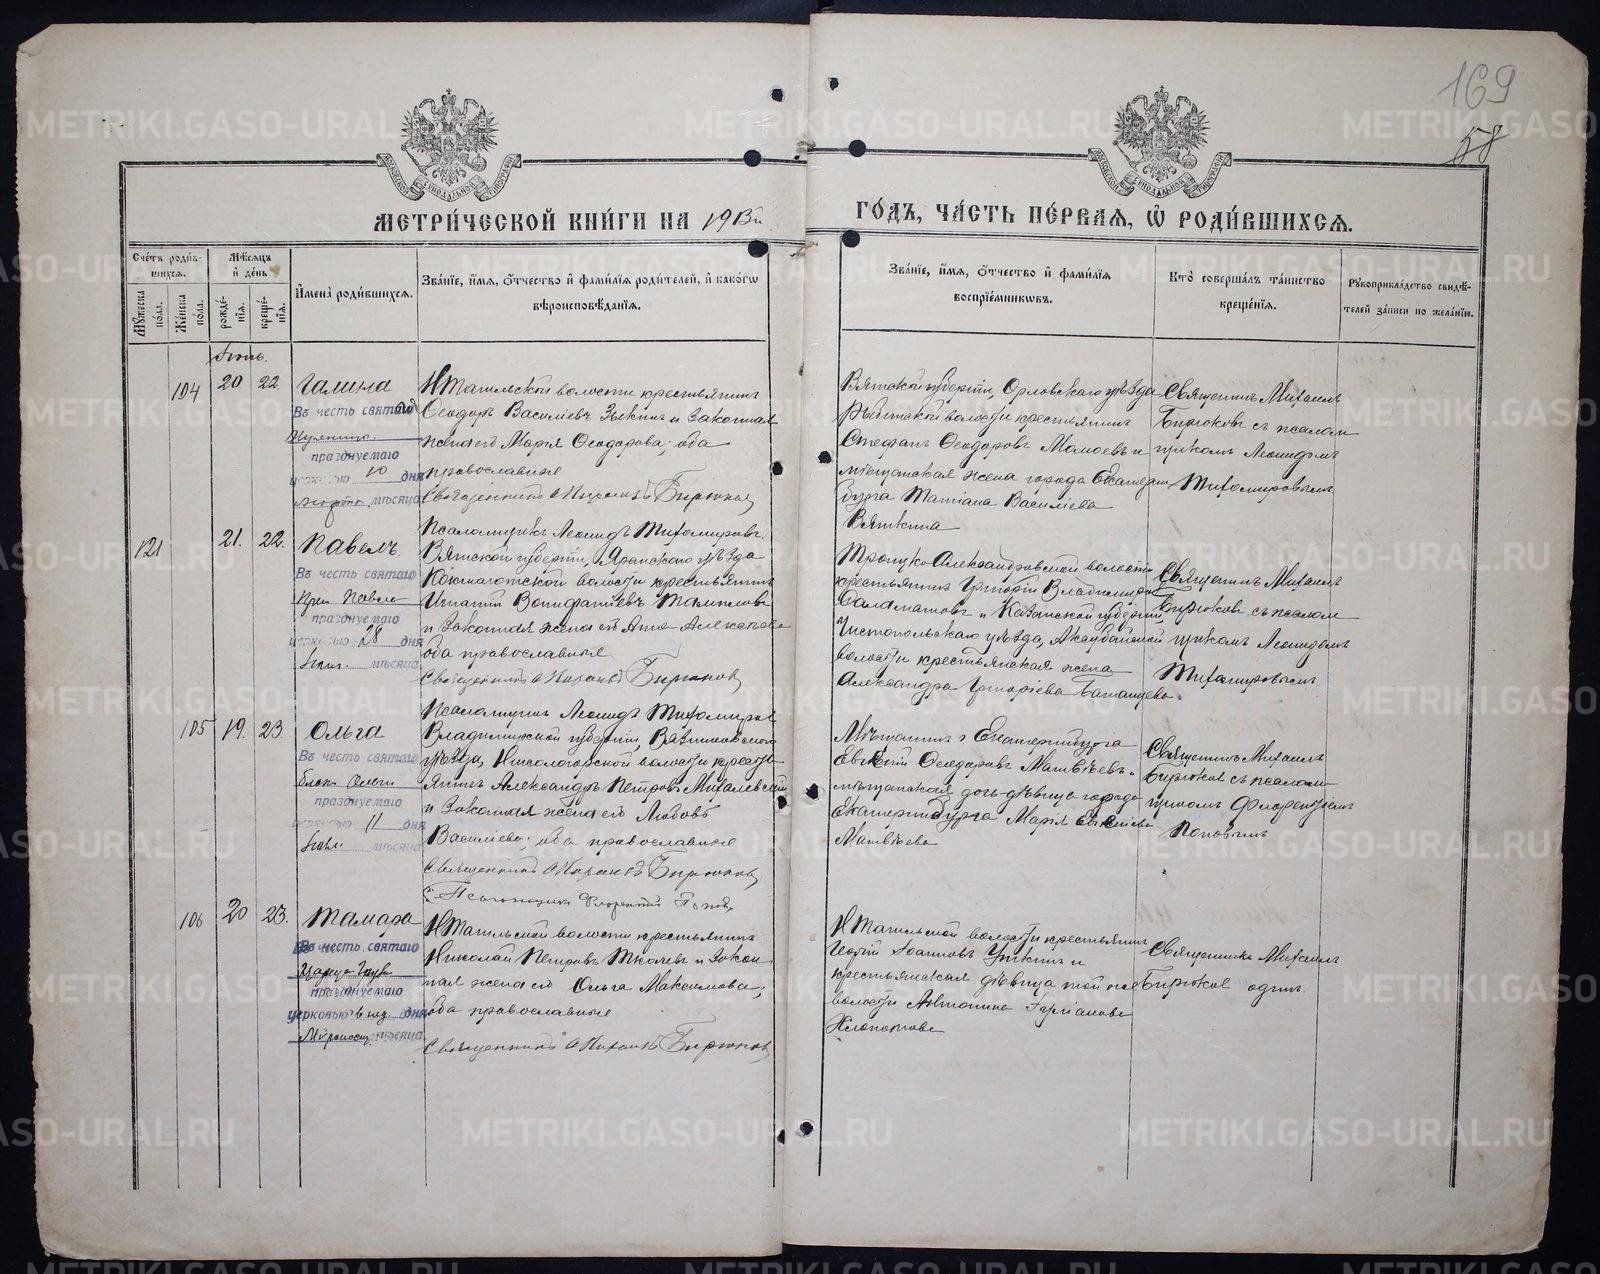 169
58
МЕТРИЧЕСКОЙ КНИГИ НА 19
ГОДЪ, ЧАСТЬ ПЕРВАЯ, Ѽ РОДИВШИХСЯ.
Счетъ родившихся.
Мѣсяцъ и день
Имена родившихся.
Званіе, имя, отчество и фамилія родителей, и какогѡ вѣроисповѣданія.
Званіе, имя, отчество и фамилія воспріемникѡвъ.
Кто совершалъ таинство крещенія.
Рукоприкладство свидѣтелей записи по желанію.
Мужеска пола.
Женска пола.
рожденія.
крещенія.
Іюнь.
104
20
22
Галина
Въ честь святой
празднуемаго
церковью 10 дня
марта мѣсяца
НТагильской волости крестьянинъ
Ѳеодоръ Василіевъ Зыкинъ и законная
жена его Марія Ѳеодорова; оба
православные
Священникъ Михаилъ Бирюковъ
Псаломщикъ Леонидъ Тихомировъ
Вятской губерніи, Орловскаго уѣзда
волости крестьянинъ
Стефанъ Ѳеодоровъ Мамаевъ и
мѣщанская жена города Екатерин
бурга Татіана Василіева
Вяткина
Священникъ Михаилъ
Бирюковъ съ псалом
щикомъ Леонидомъ
Тихомировымъ
121
21.
22.
Павелъ
Въ честь святаго
Преп. Павла
празднуемаго
церковью 28 дня
мѣсяца
Вятской губерніи, Яранскаго уѣзда
волости крестьянинъ
Игнатій Вонифатіевъ
и законная жена его Анна Алексѣева
оба православные
Священникъ Михаилъ Бирюковъ
Псаломщикъ Леонидъ Тихомировъ
Троицко-Александровской волости
крестьянинъ Григорій Владиміровъ
Саламатовъ и Казанской губерніи,
Чистопольскаго уѣзда,
волости крестьянская жена
Александра Григоріева
Священникъ Михаилъ
Бирюковъ съ псалом
щикомъ Леонидомъ
Тихомировымъ
105
19.
23.
Ольга
Въ честь святаго
Ольги
празднуемаго
церковью 11 дня
мѣсяца
Владимірской губерніи, Вязниковскаго
уѣзда, Никологорской волости кресть
янинъ Александръ Петровъ Михалевскій
и законная жена его Любовь
Василіева; оба православные
Священникъ Михаилъ Бирюковъ
Псаломщикъ Флорентій Поповъ
Мѣщанинъ г. Екатеринбурга
Евгеній Ѳеодоровъ Матвѣевъ и
мѣщанская дочь-дѣвица города
Екатеринбурга Марія Евгеніева
Матвѣева
Священникъ Михаилъ
Бирюковъ съ псалом
щикомъ Флорентіемъ
Поповымъ
106
20
23.
Тамара
Въ честь святаго
Царица Грузіи
празднуемаго
церковью в нед. дня
Мѵроносиц. мѣсяца
НТагильской волости крестьянинъ
Николай Петровъ и закон
ная жена его Ольга Максимова;
оба православные
Священникъ Михаилъ Бирюковъ
НТагильской волости крестьянинъ
Георгій Іоанновъ Уткинъ и
крестьянская дѣвица той же
волости Антонина
Хлопотова
Священникъ Михаилъ
Бирюковъ одинъ
METRIKI.GASO-URAL.RU